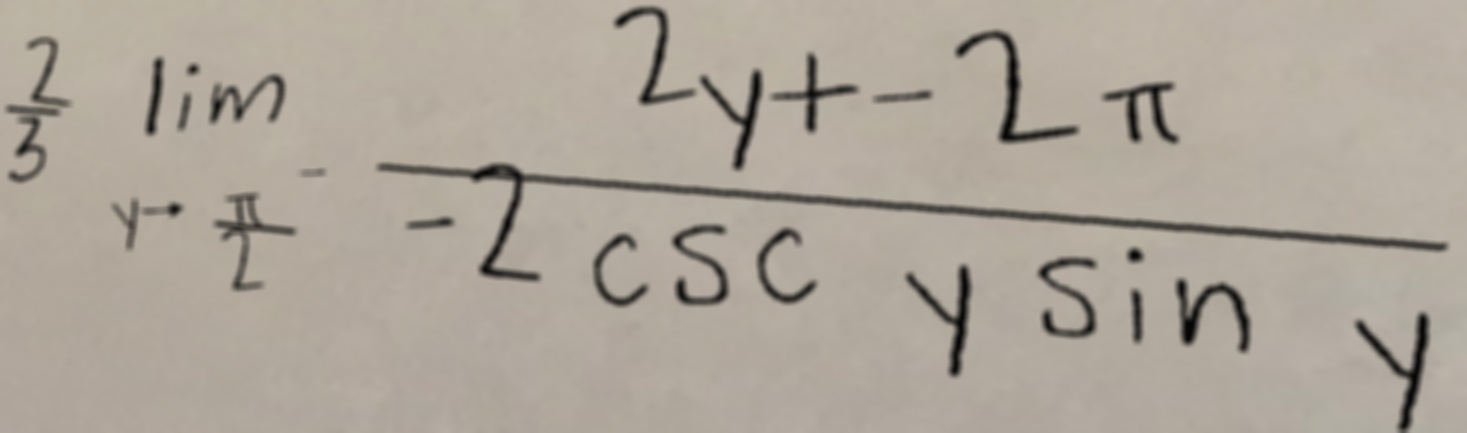 \frac{2}{3} \lim_{y \to \frac{\pi}{2}^-} \frac{2y + -2\pi}{-2 \csc y \sin y}